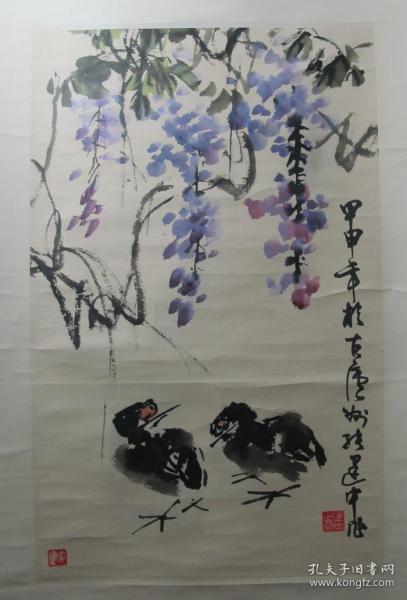 甲申年於古廬州張建中作
孔夫子旧书网
www.kongfz.com